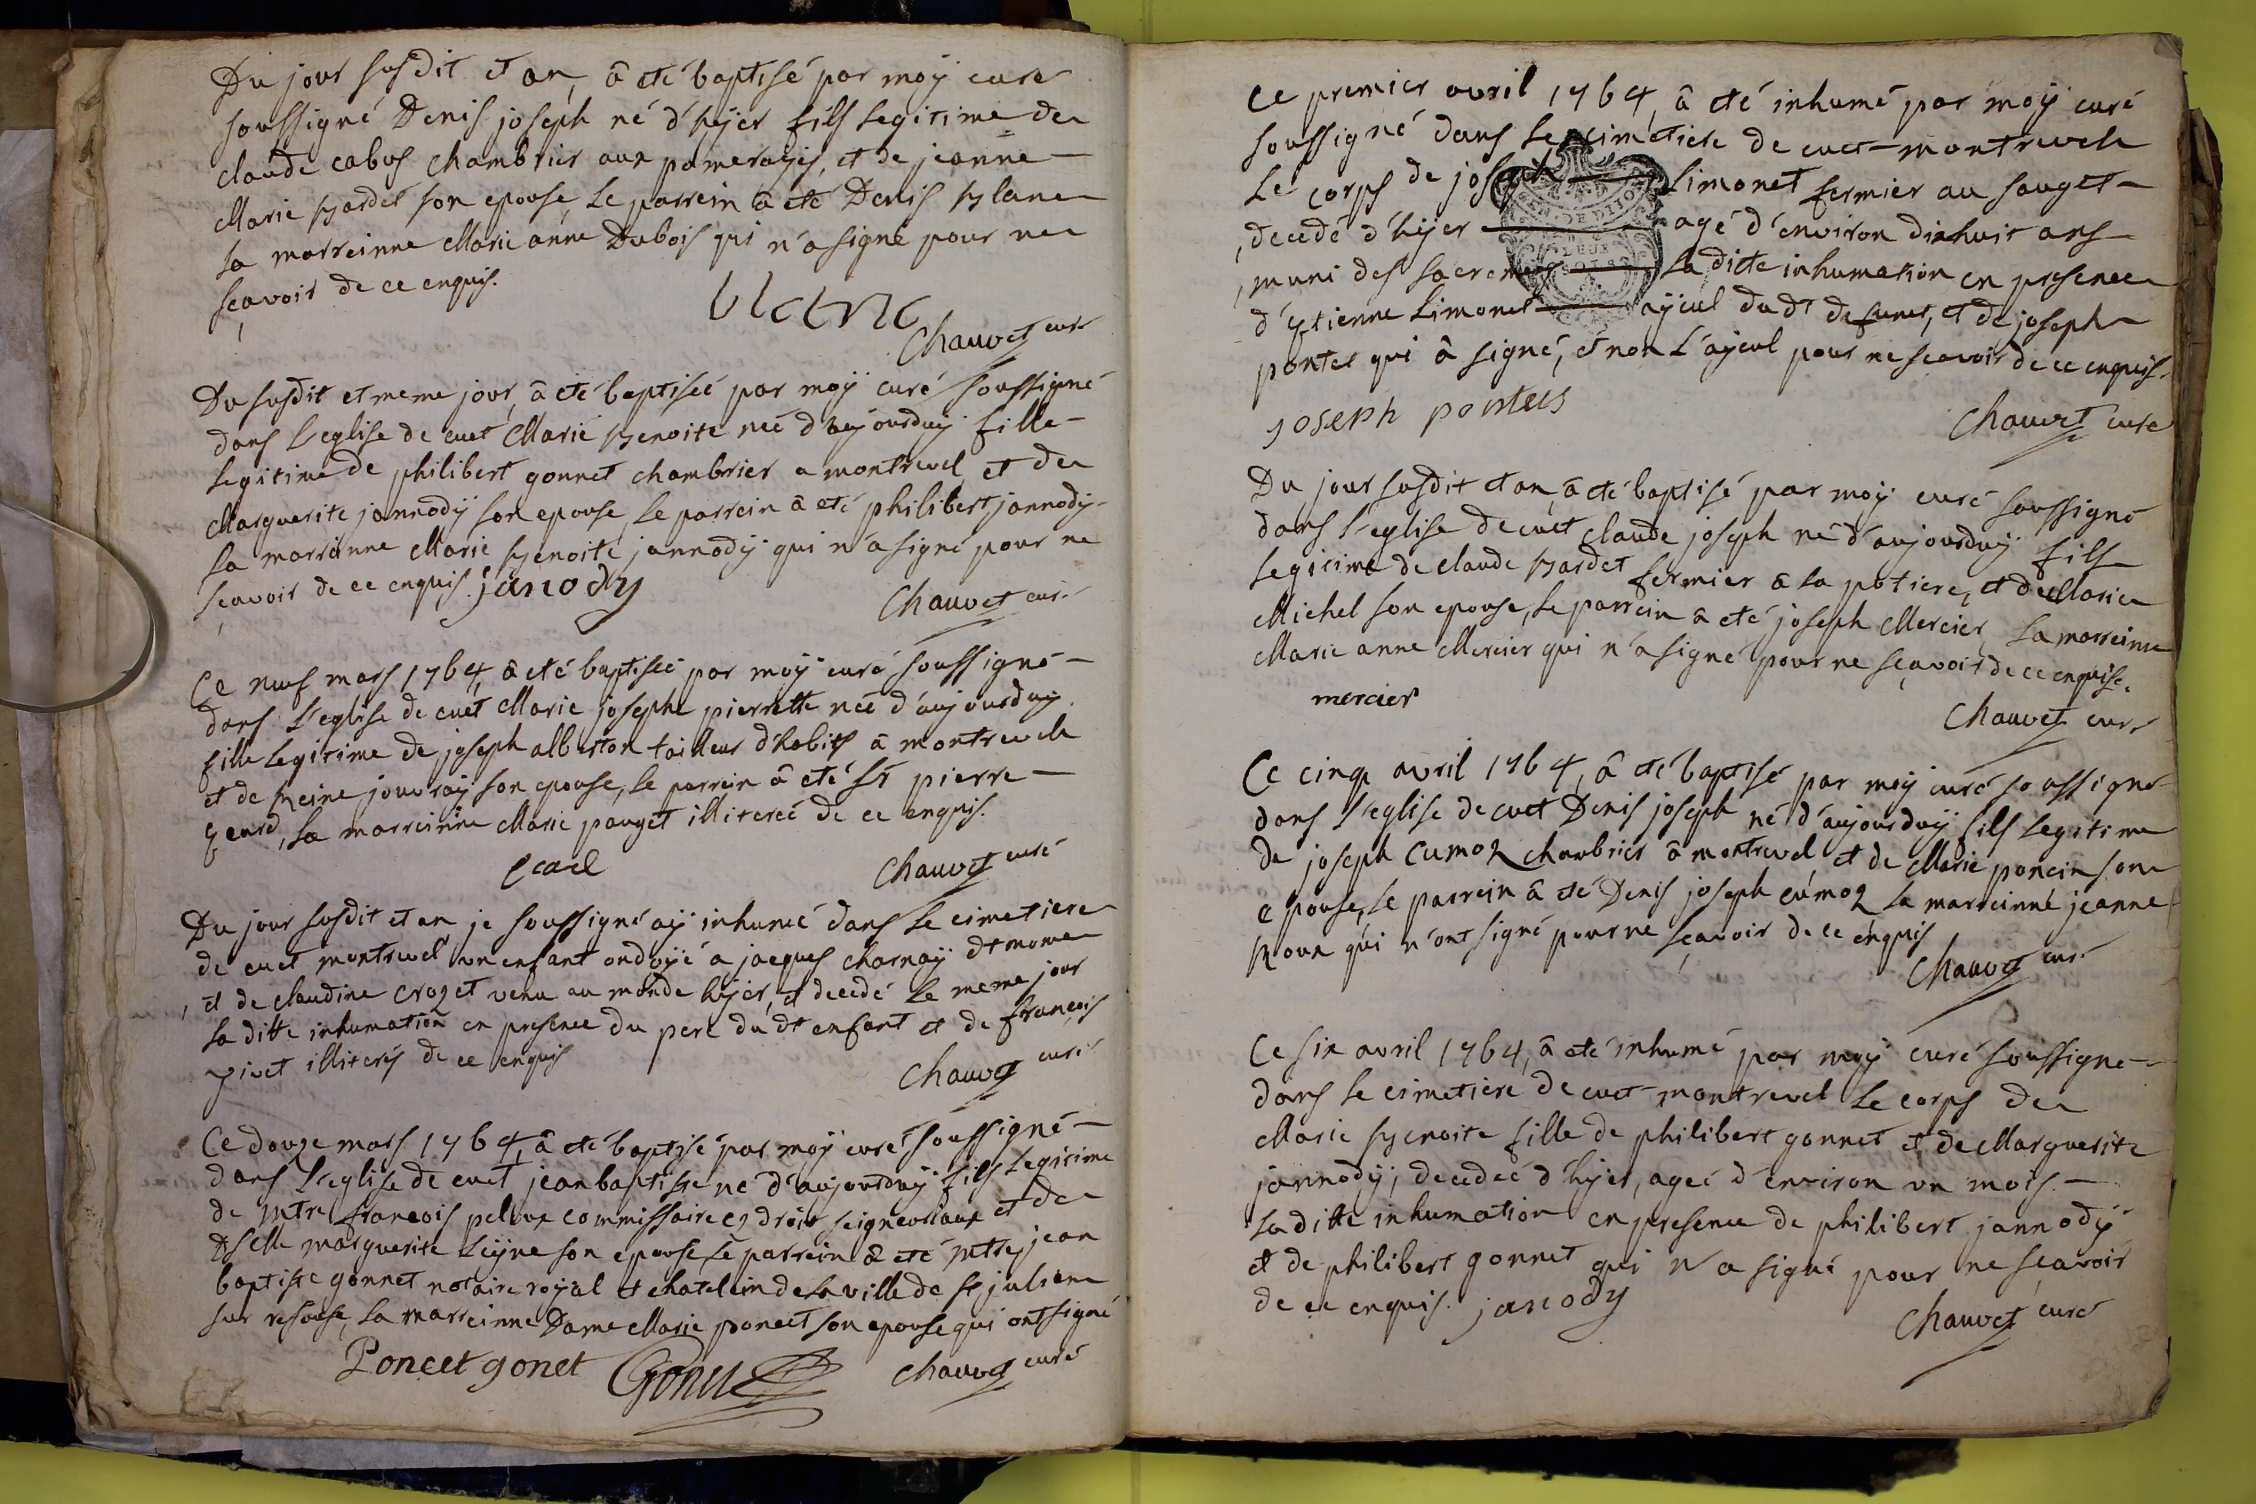 Du jour susdit et an, â eté baptisé par moÿ curé
soussigné Denis joseph né d'hÿer fils legitime de
claude cabus chambrier aux pomeraÿes, et de jeanne
Marie bardet son epouse, le parrein â eté Denis blanc
la marreinne Marie anne Dubois qui n'a signé pour ne
sçavoir de ce enquis.
blanc
Chauvet curé
Du susdit et meme jour, â eté baptiseé par moÿ curé soussigné
dans l'eglise de cuet Marie benoite neé d'aujourduÿ fille
legitime de philibert gonnet chambrier a montrevel et de
Marguerite jannodÿ son epouse, le parrein â eté philibert jannodÿ
la marreinne Marie benoite jannodÿ qui n'a signé pour ne
sçavoir de ce enquis. janody
Chauvet curé
Ce neuf mars 1764, â eté baptiseé par moÿ curé soussigné
dans l'eglise de cuet Marie josephe pierrette neé d'aujourduÿ
fille legitime de joseph alberton tailleur d'habits â montrevel
et de Reine jouvraÿ son epouse, le parrein â eté sr pierre
, la marreinne Marie pauget illitereé de ce enquis.
Chauvet curé
Du jour susdit et an je soussigné aÿ inhumé dans le cimetiere
de cuet montrevel un enfant ondoÿé a jacques charnaÿ dt
et de claudine crozet venu au monde hÿer, et decedé le meme jour
la ditte inhumation en presence du pere du dt enfant et de françois
pivet illiterés de ce enquis
Chauvet curé
Ce douze mars 1764, â eté baptisé par moÿ curé soussigné
dans l'eglise de cuet jean baptiste né d'aujourduÿ fils legitime
de Mtre françois peloux commissaire es droits seigneuriaux et de
Dselle marguerite son epouse le parrein â eté Mtre jean
baptiste gonnet notaire roÿal et chatelain de la ville de st julien
sur resouse, la marreinne Dame Marie poncet son epouse qui ont signé
Poncet gonet Gonet
Chauvet curé
Ce premier avril 1764, â eté inhumé par moÿ curé
soussigné dans le cimetiere de cuet-montrevel
Le corps de joseph Limonet fermier au sauget
, decedé d'hÿer agé d'environ dixhuit ans
, muni des sacremens La ditte inhumation en presence
d'Etienne Limonet aÿeul du dt defunct, et de joseph
pontes qui â signé, et non l'aÿeul pour ne sçavoir de ce enquis.
joseph pontus
Chauvet curé
Du jour susdit et an, â eté baptisé par moÿ curé soussigné
dans l'eglise de cuet claude joseph né d'aujourduÿ fils
legitime de claude bardet fermier â la potiere, et de Marie
Michel son epouse, le parrein â eté joseph Mercier la marreinne
Marie anne Mercier qui n'a signé pour ne sçavoir de ce enquise.
mercier
Chauvet curé
Ce cinq avril 1764, â eté baptisé par moÿ curé soussigné
dans l'eglise de cuet Denis joseph né d'aujourduÿ fils legitime
de joseph cumoz chambrier â montrevel et de Marie poncin son
epouse, le parrein â eté Denis joseph cumoz la marreinne jeanne
Roux qui n'ont signé pour ne sçavoir de ce enquis
Chauvet curé
Ce six avril 1764, â eté inhumé par moÿ curé soussigné
dans le cimetiere de cuet-montrevel Le corps de
Marie benoite fille de philibert gonnet et de Marguerite
jannodÿ, decedeé d'hÿer, ageé d'environ un mois.
La ditte inhumation en presence de philibert jannodÿ
et de philibert gonnet qui n'a signé pour ne sçavoir
de ce enquis. janody
Chauvet curé